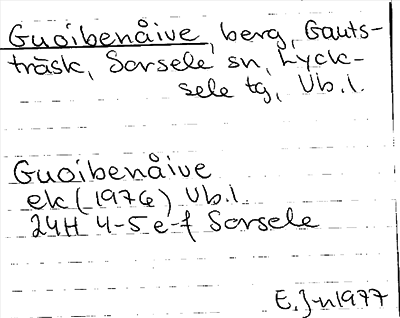 Guoibenåive, berg, Gauts-
träsk, Sorsele sn, Lyck-
sele tg, Vb.l.
Guoibenåive
ek (1976) Vb.l.
24H 4-5 e-f Sorsele
E. J-n 1977